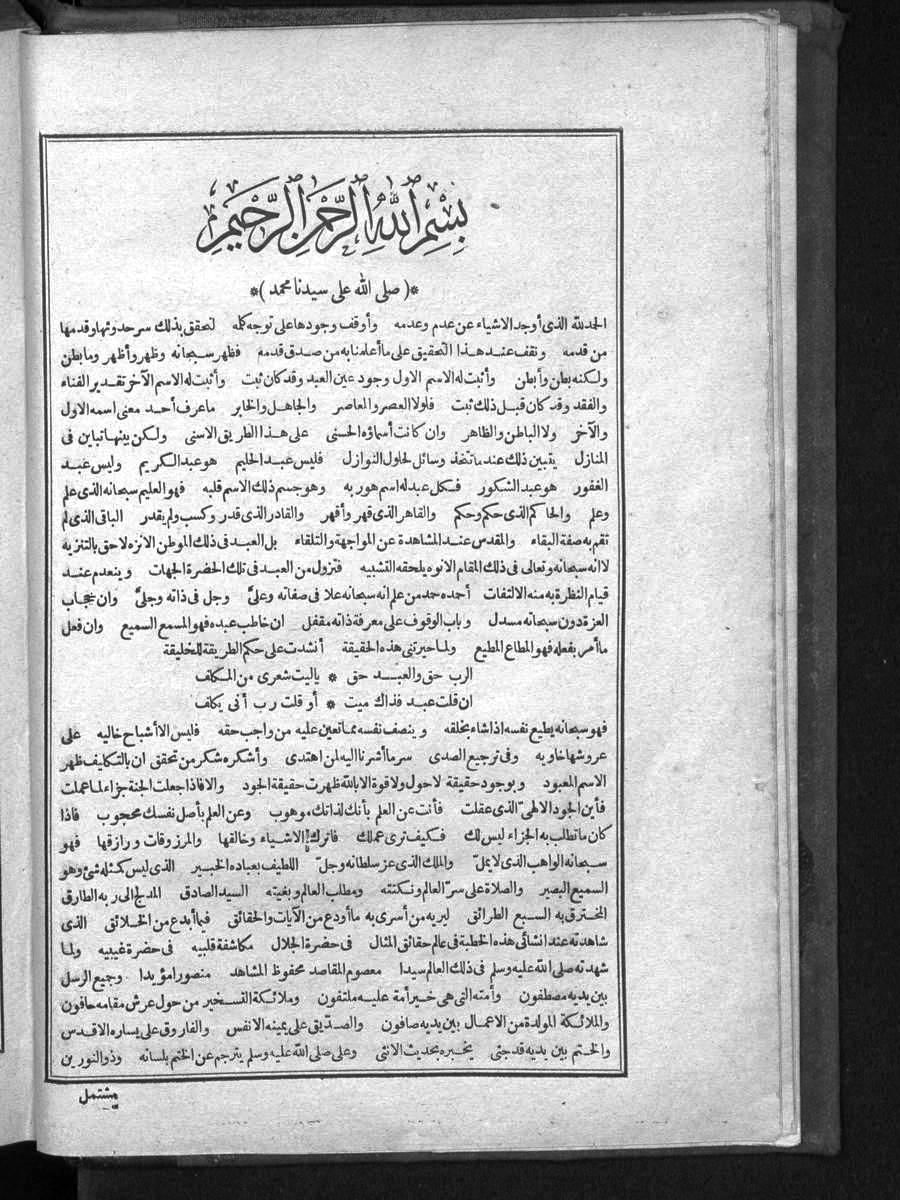 بِسْمِ ٱللهِ ٱلرَّحْمٰنِ ٱلرَّحِيمِ
*( صلى الله على سيدنا محمد )*
الحمدلله الذى أوجد الاشياء عن عدم وعدمه وأوقف وجودها على توجه كلمه لنحقق بذلك سر حدوثها وقدمها
من قدمه ونقف عند هذا التحقيق على ما أعلمنا به من صدق قدمه فظهر سبحانه وظهر وأظهر وما بطن
ولكنه بطن وأبطن وأثبت له الاسم الاول وجود عين العبد وقد كان ثبت وأثبت له الاسم الآخر تقدير الفناء
والفقد وقد كان قبل ذلك ثبت فلولا العصر والمعاصر والجاهل والخابر ما عرف أحد معنى اسمه الاول
والآخر ولا الباطن والظاهر وان كانت أسماؤه الحسنى على هذا الطريق الاسنى ولكن بينها تباين فى
المنازل يتبين ذلك عند ما تتخذ وسائل لحلول النوازل فليس عبد الحليم هو عبد الكريم وليس عبد
الغفور هو عبد الشكور فكل عبد له اسم هو ربه وهو جسم ذلك الاسم قلبه فهو العليم سبحانه الذى علم
وعلم والحاكم الذى حكم وحكم والقاهر الذى قهر وأقهر والقادر الذى قدر وكسب ولم يقدر الباقى الذى لم
تقم به صفة البقاء والمقدس عند المشاهدة عن المواجهة والتلقاء بل العبد فى ذلك الموطن الانزه لاحق بالتنزيه
لا انه سبحانه وتعالى فى ذلك المقام الانوه يلحقه التشبيه فتزول من العبد فى تلك الحضرة الجهات وينعدم عند
قيام النظرة به منه الالتفات أحمده حمد من علم انه سبحانه علا فى صفاته وعلىّ وجل فى ذاته وجلىّ وان حجاب
العزة دون سبحانه مسدل وباب الوقوف على معرفة ذاته مقفل ان خاطب عبده فهو المسمع السميع وان فعل
ما أمر بفعله فهو المطاع المطيع ولما حيرتنى هذه الحقيقة أنشدت على حكم الطريقة للخليقة
الرب حق والعبد حق * ياليت شعرى من المكلف
ان قلت عبد فذاك ميت * أو قلت رب أنى يكلف
فهو سبحانه يطيع نفسه اذا شاء بخلقه وينصف نفسه مما تعين عليه من واجب حقه فليس الا أشباح خاليه على
عروشها خاويه وفى ترجيع الصدى سر ما أشرنا اليه لمن اهتدى وأشكره شكر من تحقق ان بالتكليف ظهر
الاسم المعبود وبوجود حقيقة لا حول ولا قوة الا بالله ظهرت حقيقة الجود والا فاذا جعلت الجنة جزاء لما عملت
فأين الجود الالهىّ الذى عقلت فأنت عن العلم بأنك لذاتك موهوب وعن العلم بأصل نفسك محجوب فاذا
كان ما تطلب به الجزاء ليس لك فكيف ترى عملك فاترك الاشياء وخالقها والمرزوقات ورازقها فهو
سبحانه الواهب الذى لا يملّ والملك الذى عز سلطانه وجلّ اللطيف بعباده الخبير الذى ليس كمثله شئ وهو
السميع البصير والصلاة على سرّ العالم ونكتته ومطلب العالم وبغيته السيد الصادق المدلج الى ربه الطارق
المخترق به السبع الطرائق ليريه من أسرى به ما أودع من الآيات والحقائق فيما أبدع من الخلائق الذى
شاهدته عند انشائى هذه الخطبة فى عالم حقائق المثال فى حضرة الجلال مكاشفة قلبيه فى حضرة غيبيه ولما
شهدته صلى الله عليه وسلم فى ذلك العالم سيدا معصوم المقاصد محفوظ المشاهد منصورا مؤيدا وجميع الرسل
بين يديه مصطفون وأمته التى هى خير أمة عليه ملتفون وملائكة التسخير من حول عرش مقامه حافون
والملائكة المولدة من الاعمال بين يديه صافون والصدّيق على يمينه الانفس والفاروق على يساره الاقدس
والختم بين يديه قد جثى يخبره بحديث الانثى وعلى صلى الله عليه وسلم يترجم عن الختم بلسانه وذو النورين
مشتمل